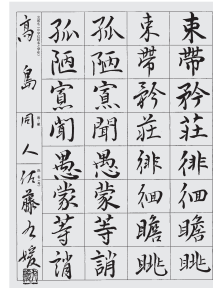 束帶矜莊徘徊瞻眺
束帶矜莊徘徊瞻眺
孤陋寡聞愚蒙等誚
孤陋寡聞愚蒙等誚
同人 佐藤